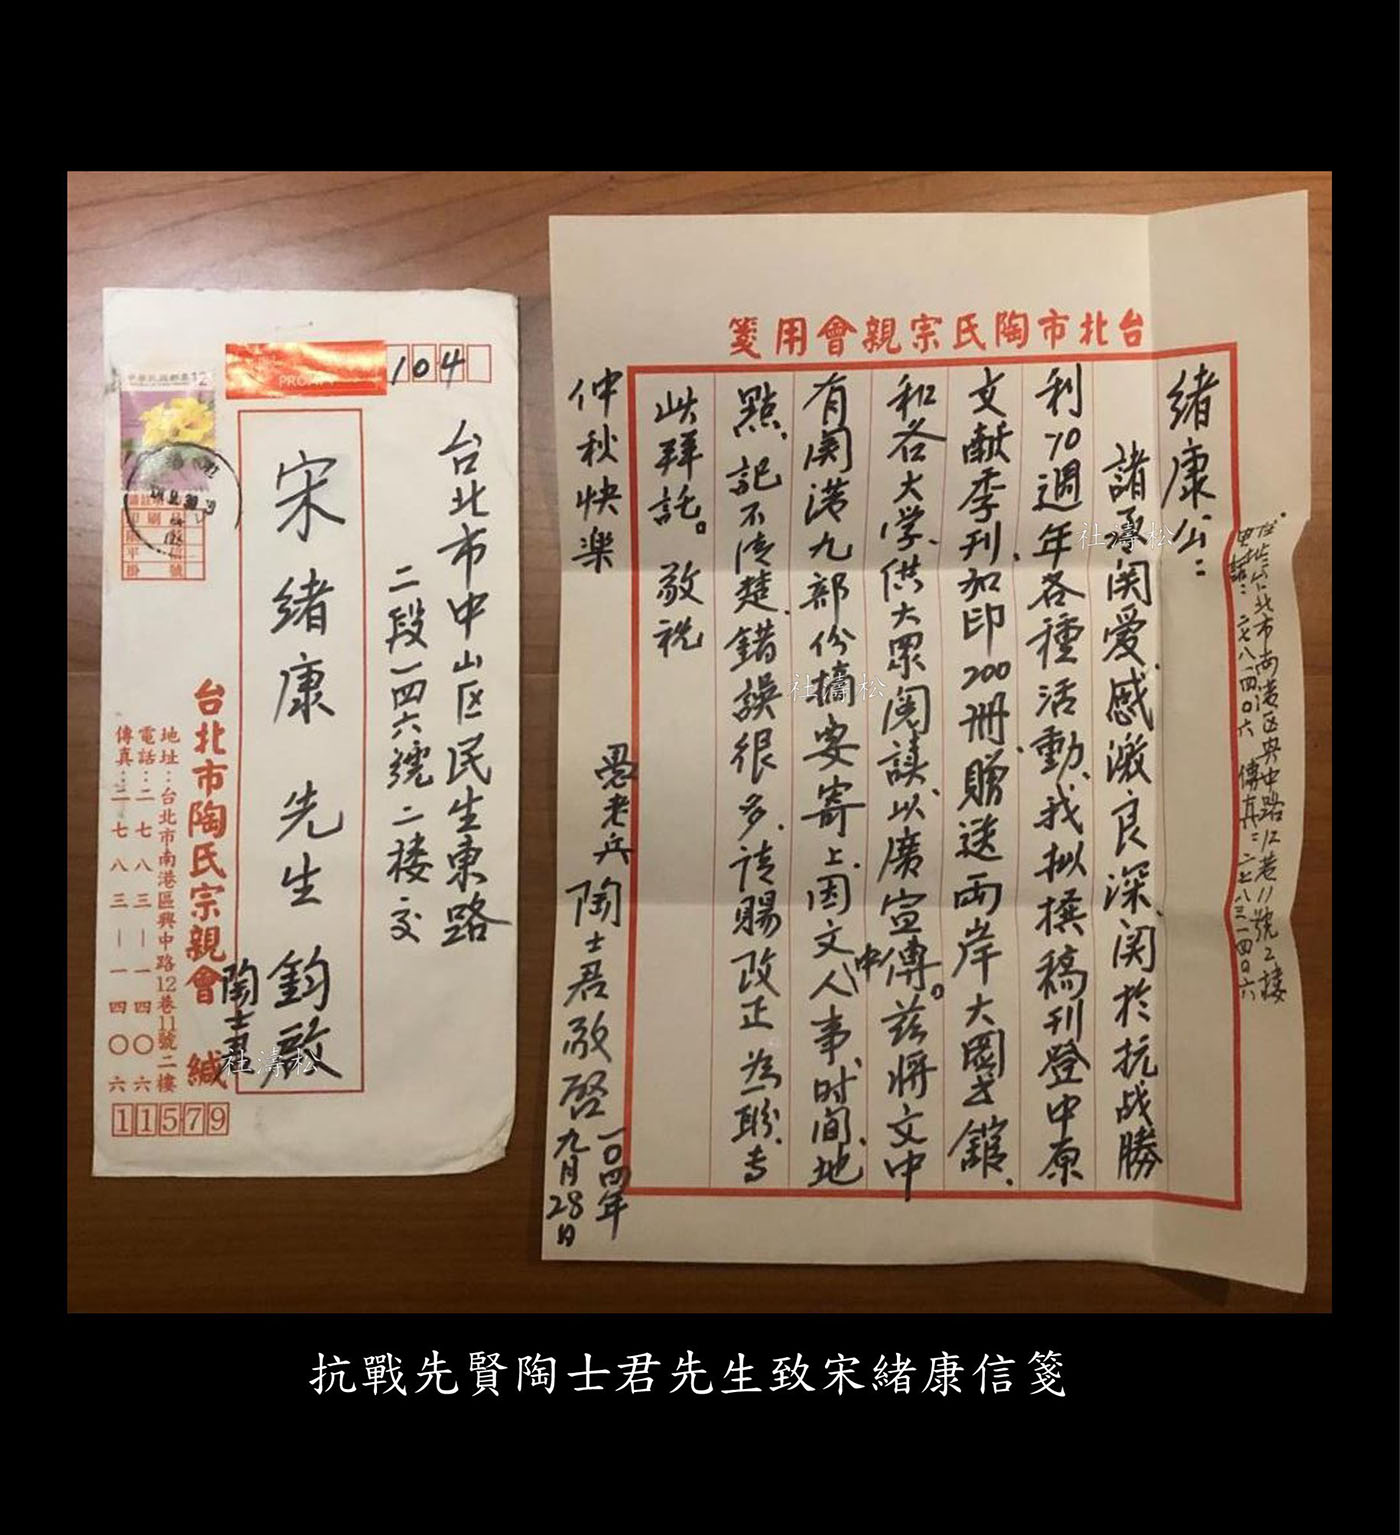 中華民國郵票 12
104
台北市中山区民生東路
二段一四六號二樓交
宋緒康先生 鈞啟
台北市陶氏宗親會 緘
陶士君
地址：台北市南港區興中路12巷11號二樓
電話：二七八三一一四〇六
傳真：二七八三一一四〇六
11579
台北市陶氏宗親會用箋
緒康公：
諸承関爱、感激良深、関於抗战勝
利70週年各種活動、我拟撰稿刊登中原
文献季刊、加印200冊、贈送兩岸大圖書館、
和各大学、供大眾閱讀、以廣宣傳。茲將文中
有関港九部份摘要寄上、因文中人、事、时间、地
點、記不清楚、錯誤很多、请賜改正為盼、专
此拜託。 敬祝
仲秋快樂
愚老兵 陶士君敬啓
一〇四年
九月28日
住址：台北市南港区興中路12巷11號2樓
電話：二七八三一四〇六 傳真：二七八三一四〇六
松濤社
松濤社
松濤社
抗戰先賢陶士君先生致宋緒康信箋